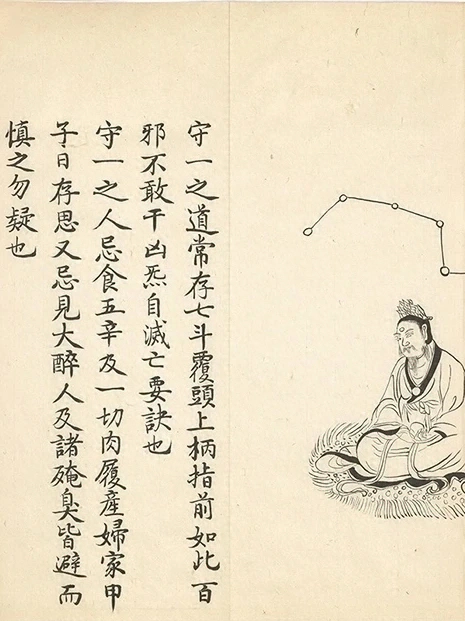 守一之道常存七斗覆頭上柄指前如此百
邪不敢干凶炁自滅亡要訣也
守一之人忌食五辛及一切肉履產婦家甲
子日存思又忌見大醉人及諸殗臭皆避而
慎之勿疑也